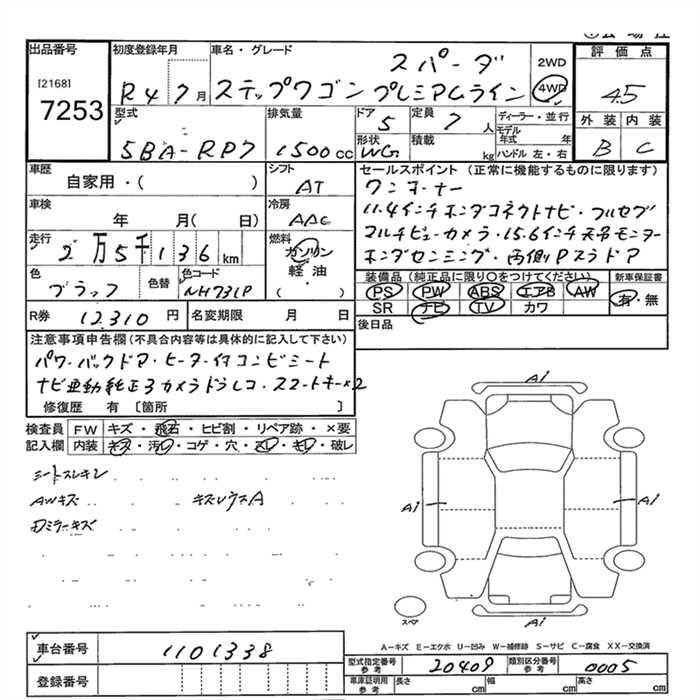 出品番号
[2168]
7253
初度登録年月
R4 7月
車名・グレード
スパーダ
ステップワゴン プレミアムライン
2WD
4WD
評価点
4.5
外装 内装
B C
型式
5BA-RP7
排気量
1500cc
ドア
5
形状
WG
定員
7人
積載
kg
ディーラー・並行
モデル年式 年
ハンドル 左・右
車歴
自家用・( )
シフト
AT
車検
年 月( 日)
冷房
AAC
走行
2万5千136km
燃料
ガソリン
軽油
( )
色
ブラック
色替
色コード
NH731P
R券
12,310円
名変期限 月 日
セールスポイント (正常に機能するものに限ります)
ワンオーナー
11.4インチホンダコネクトナビ・フルセグ
マルチビューカメラ・15.6インチ天吊モニター
ホンダセンシング・両側Pスラドア
装備品 (純正品に限り○をつけてください)
PS PW ABS エアB AW
SR ナビ TV カワ
新車保証書
有・無
後日品
注意事項申告欄(不具合内容等は具体的に記入して下さい)
パワーバックドア・ヒーター付コンビシート
ナビ連動純正3カメラドラレコ・スマートキー×2
修復歴 有 〔箇所 〕
検査員記入欄
FW キズ・飛石・ヒビ割・リペア跡・×要
内装 キズ・汚レ・コゲ・穴・スレ・キレ・破レ
シートスレキレ
AWキズ
キズレウスA
Dミラーキズ
A1
A1
A1
A1
スペア
A-キズ E-エクボ U-凹み W-補修跡 S-サビ C-腐食 XX-交換済
車台番号
1101338
登録番号
型式指定番号 参考
20409
類別区分番号 参考
0005
車庫証明用 参考
長さ cm 幅 cm 高さ cm